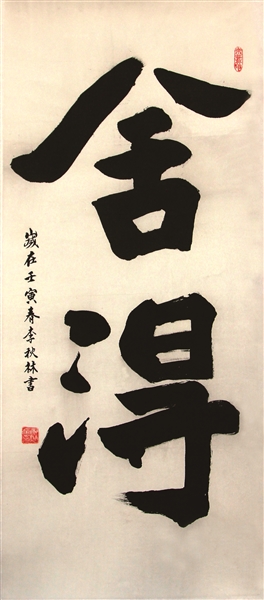 舍得
歲在壬寅春李秋林書